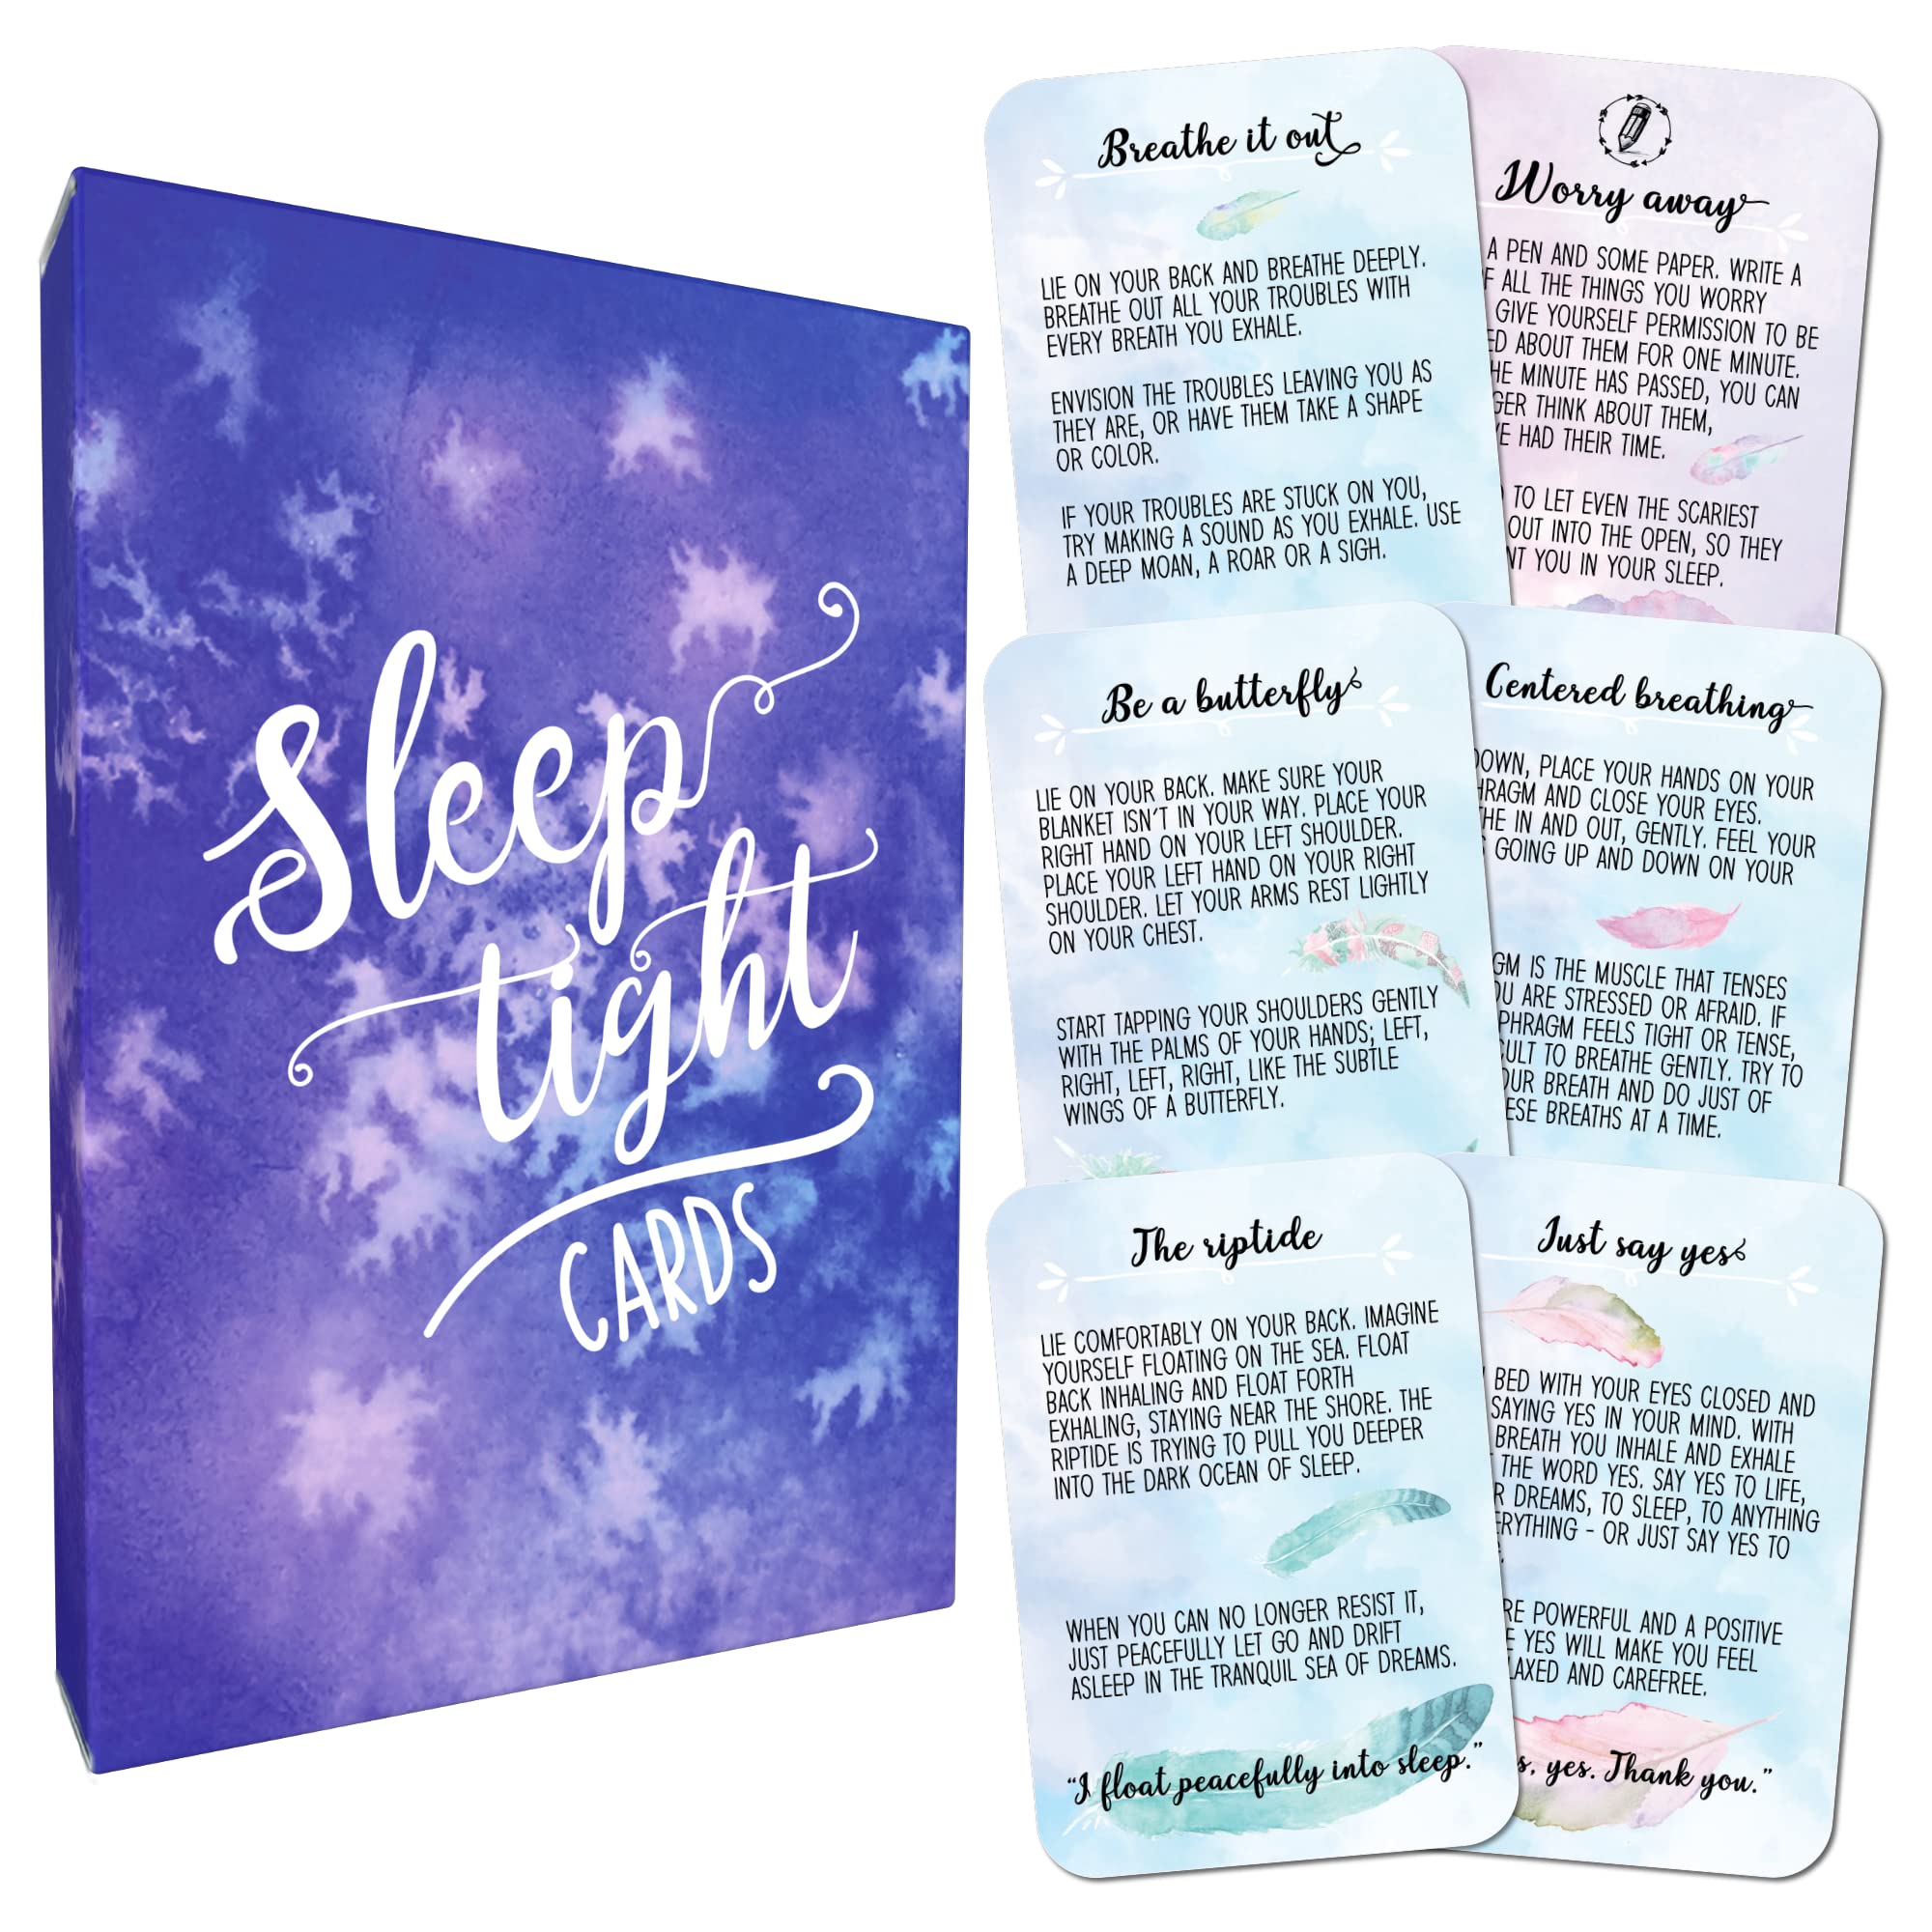 Sleep
tight
CARDS
Breathe it out
LIE ON YOUR BACK AND BREATHE DEEPLY.
BREATHE OUT ALL YOUR TROUBLES WITH
EVERY BREATH YOU EXHALE.
ENVISION THE TROUBLES LEAVING YOU AS
THEY ARE, OR HAVE THEM TAKE A SHAPE
OR COLOR.
IF YOUR TROUBLES ARE STUCK ON YOU,
TRY MAKING A SOUND AS YOU EXHALE. USE
A DEEP MOAN, A ROAR OR A SIGH.
Worry away
A PEN AND SOME PAPER. WRITE A
ALL THE THINGS YOU WORRY
GIVE YOURSELF PERMISSION TO BE
ABOUT THEM FOR ONE MINUTE.
MINUTE HAS PASSED, YOU CAN
THINK ABOUT THEM,
HAD THEIR TIME.
TO LET EVEN THE SCARIEST
OUT INTO THE OPEN, SO THEY
YOU IN YOUR SLEEP.
Be a butterfly
LIE ON YOUR BACK. MAKE SURE YOUR
BLANKET ISN'T IN YOUR WAY. PLACE YOUR
RIGHT HAND ON YOUR LEFT SHOULDER.
PLACE YOUR LEFT HAND ON YOUR RIGHT
SHOULDER. LET YOUR ARMS REST LIGHTLY
ON YOUR CHEST.
START TAPPING YOUR SHOULDERS GENTLY
WITH THE PALMS OF YOUR HANDS; LEFT,
RIGHT, LEFT, RIGHT, LIKE THE SUBTLE
WINGS OF A BUTTERFLY.
Centered breathing
DOWN, PLACE YOUR HANDS ON YOUR
AND CLOSE YOUR EYES.
IN AND OUT, GENTLY. FEEL YOUR
GOING UP AND DOWN ON YOUR
IS THE MUSCLE THAT TENSES
ARE STRESSED OR AFRAID. IF
FEELS TIGHT OR TENSE,
TO BREATHE GENTLY. TRY TO
BREATH AND DO JUST OF
BREATHS AT A TIME.
The riptide
LIE COMFORTABLY ON YOUR BACK. IMAGINE
YOURSELF FLOATING ON THE SEA. FLOAT
BACK INHALING AND FLOAT FORTH
EXHALING, STAYING NEAR THE SHORE. THE
RIPTIDE IS TRYING TO PULL YOU DEEPER
INTO THE DARK OCEAN OF SLEEP.
WHEN YOU CAN NO LONGER RESIST IT,
JUST PEACEFULLY LET GO AND DRIFT
ASLEEP IN THE TRANQUIL SEA OF DREAMS.
"I float peacefully into sleep."
Just say yes
BED WITH YOUR EYES CLOSED AND
SAYING YES IN YOUR MIND. WITH
BREATH YOU INHALE AND EXHALE
THE WORD YES. SAY YES TO LIFE,
DREAMS, TO SLEEP, TO ANYTHING
- OR JUST SAY YES TO
POWERFUL AND A POSITIVE
YES WILL MAKE YOU FEEL
AND CAREFREE.
yes. Thank you."